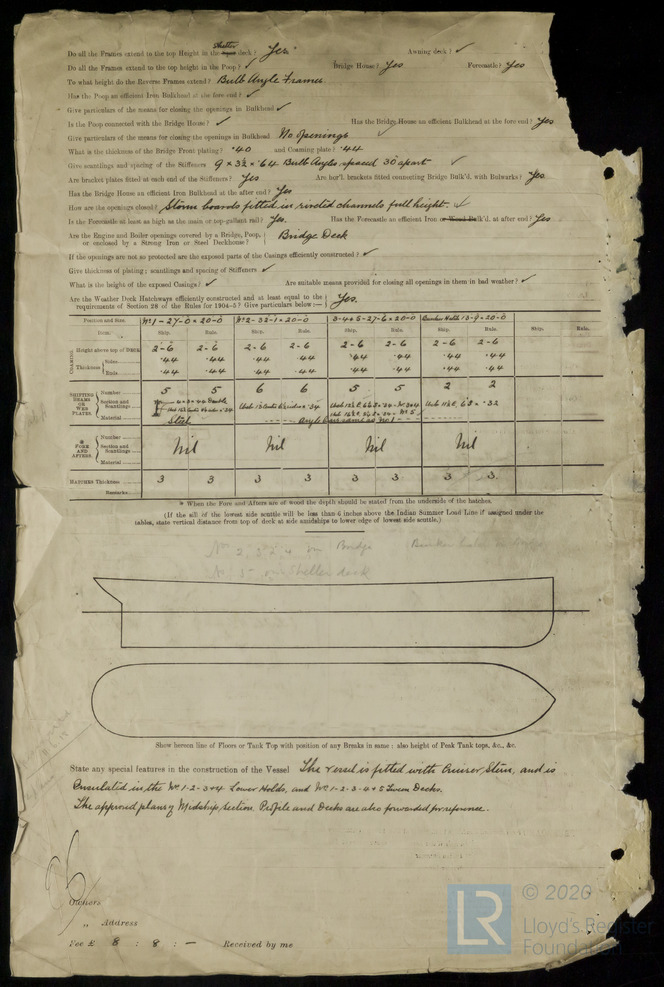 Do all the Frames extend to the top Height in the Shelter deck? Yes. Awning deck? ✓
Do all the Frames extend to the top height in the Poop? ✓ Bridge House? Yes Forecastle? Yes
To what height do the Reverse Frames extend? Bulb Angle Frames
Has the Poop an efficient Iron Bulkhead at the fore end? ✓
Give particulars of the means for closing the openings in Bulkhead ✓
Is the Poop connected with the Bridge House? ✓ Has the Bridge House an efficient Bulkhead at the fore end? Yes
Give particulars of the means for closing the openings in Bulkhead No openings ✓
What is the thickness of the Bridge Front plating? .40 and Coaming plate? .44
Give scantlings and spacing of the Stiffeners 9 × 3½ × .64 Bulb Angles spaced 30 apart ✓
Are bracket plates fitted at each end of the Stiffeners? Yes Are hor'l. brackets fitted connecting Bridge Bulk'd. with Bulwarks? Yes
Has the Bridge House an efficient Iron Bulkhead at the after end? Yes
How are the openings closed? Storm boards fitted in riveted channels full height. ✓
Is the Forecastle at least as high as the main or top-gallant rail? Yes. Has the Forecastle an efficient Iron or Wood Bulk'd. at after end? Yes
Are the Engine and Boiler openings covered by a Bridge, Poop,
or enclosed by a Strong Iron or Steel Deckhouse? Bridge Deck
If the openings are not so protected are the exposed parts of the Casings efficiently constructed? ✓
Give thickness of plating; scantlings and spacing of Stiffeners ✓
What is the height of the exposed Casings? ✓ Are suitable means provided for closing all openings in them in bad weather? ✓
Are the Weather Deck Hatchways efficiently constructed and at least equal to the
requirements of Section 28 of the Rules for 1904-5? Give particulars below:— Yes.
Position and Size No 1 - 27-0 × 20-0 No 2 - 32-1 × 20-0 3-4+5-27-6 × 20-0 Bunker Hatch 13-9 × 20-0
Item. Ship. Rule. Ship. Rule. Ship. Rule. Ship. Rule. Ship. Rule.
COAMING Height above top of DECK 2-6 2-6 2-6 2-6 2-6 2-6 2-6 2-6
Thickness Sides .44 .44 .44 .44 .44 .44 .44 .44
Ends .44 .44 .44 .44 .44 .44 .44 .44
SHIFTING BEAMS OR WEB PLATES Number 5 5 6 6 5 5 2 2
Section and Scantlings
Material Steel
FORE AND AFTERS. Number
Section and Scantlings Nil Nil Nil Nil
Material
HATCHES Thickness 3 3 3 3 3 3 3 3
Remarks
* When the Fore and Afters are of wood the depth should be stated from the underside of the hatches.
(If the sill of the lowest side scuttle will be less than 6 inches above the Indian Summer Load Line if assigned under the
tables, state vertical distance from top of deck at side amidships to lower edge of lowest side scuttle.)
Bridge
shelter deck
Show hereon line of Floors or Tank Top with position of any Breaks in same: also height of Peak Tank tops, &c., &c.
State any special features in the construction of the Vessel The vessel is fitted with Cruiser Stern, and is
Insulated in the Nos 1-2-3+4 Lower Holds, and Nos 1-2-3-4+5 Tween Decks.
The approved plans of Midship section Profile and Decks are also forwarded for reference.
Owners
„ Address
Fee £ 8 : 8 : — Received by me
LR © 2020
Lloyd's Register
Foundation